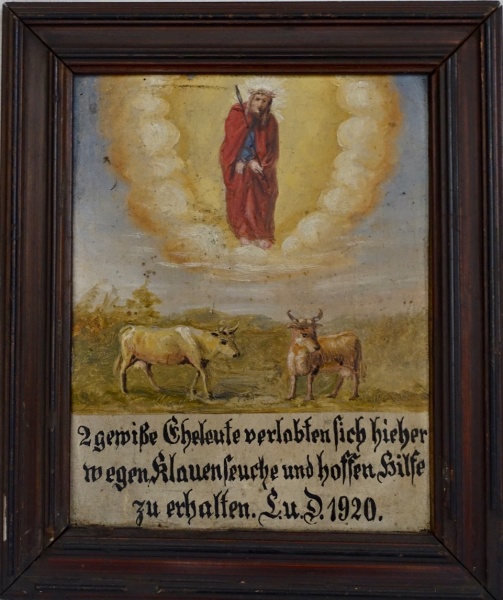 2 gewiße Eheleute verlobten sich hieher
wegen Klauenseuche und hoffen Hilfe
zu erhalten. L. u. D. 1920.